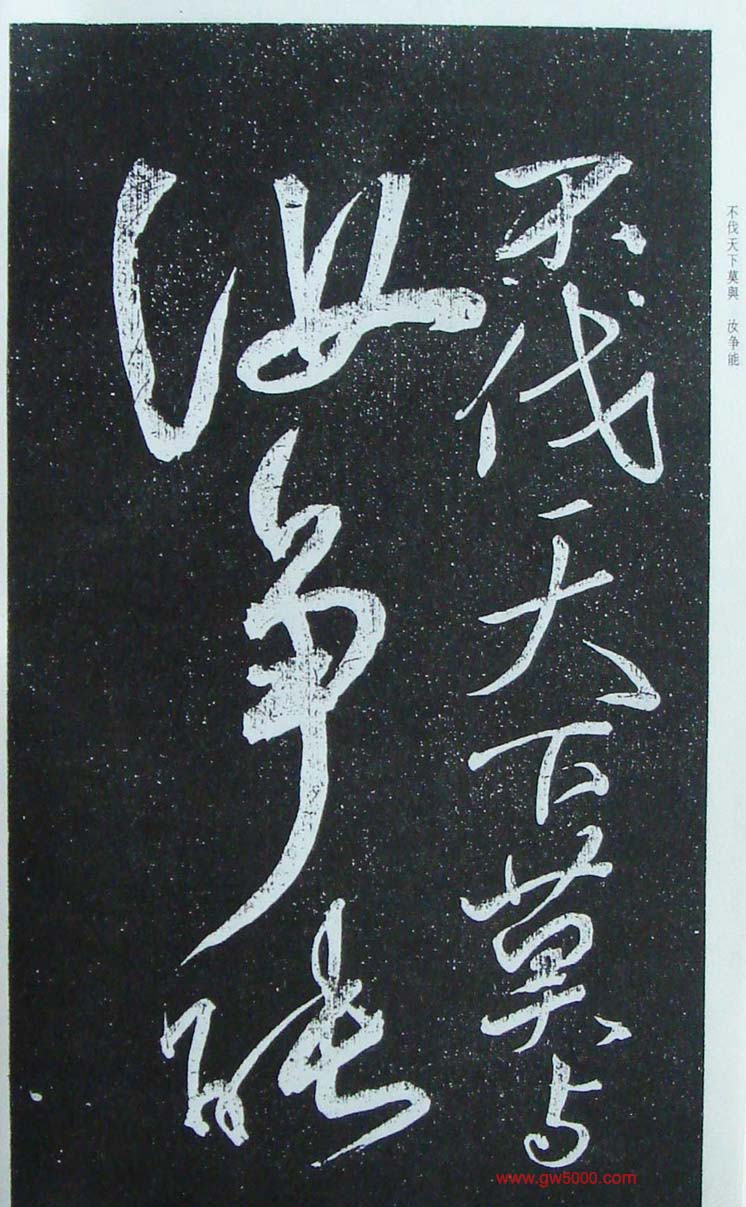 不伐天下莫与
汝争能
不伐天下莫與 汝争能
www.gw5000.com